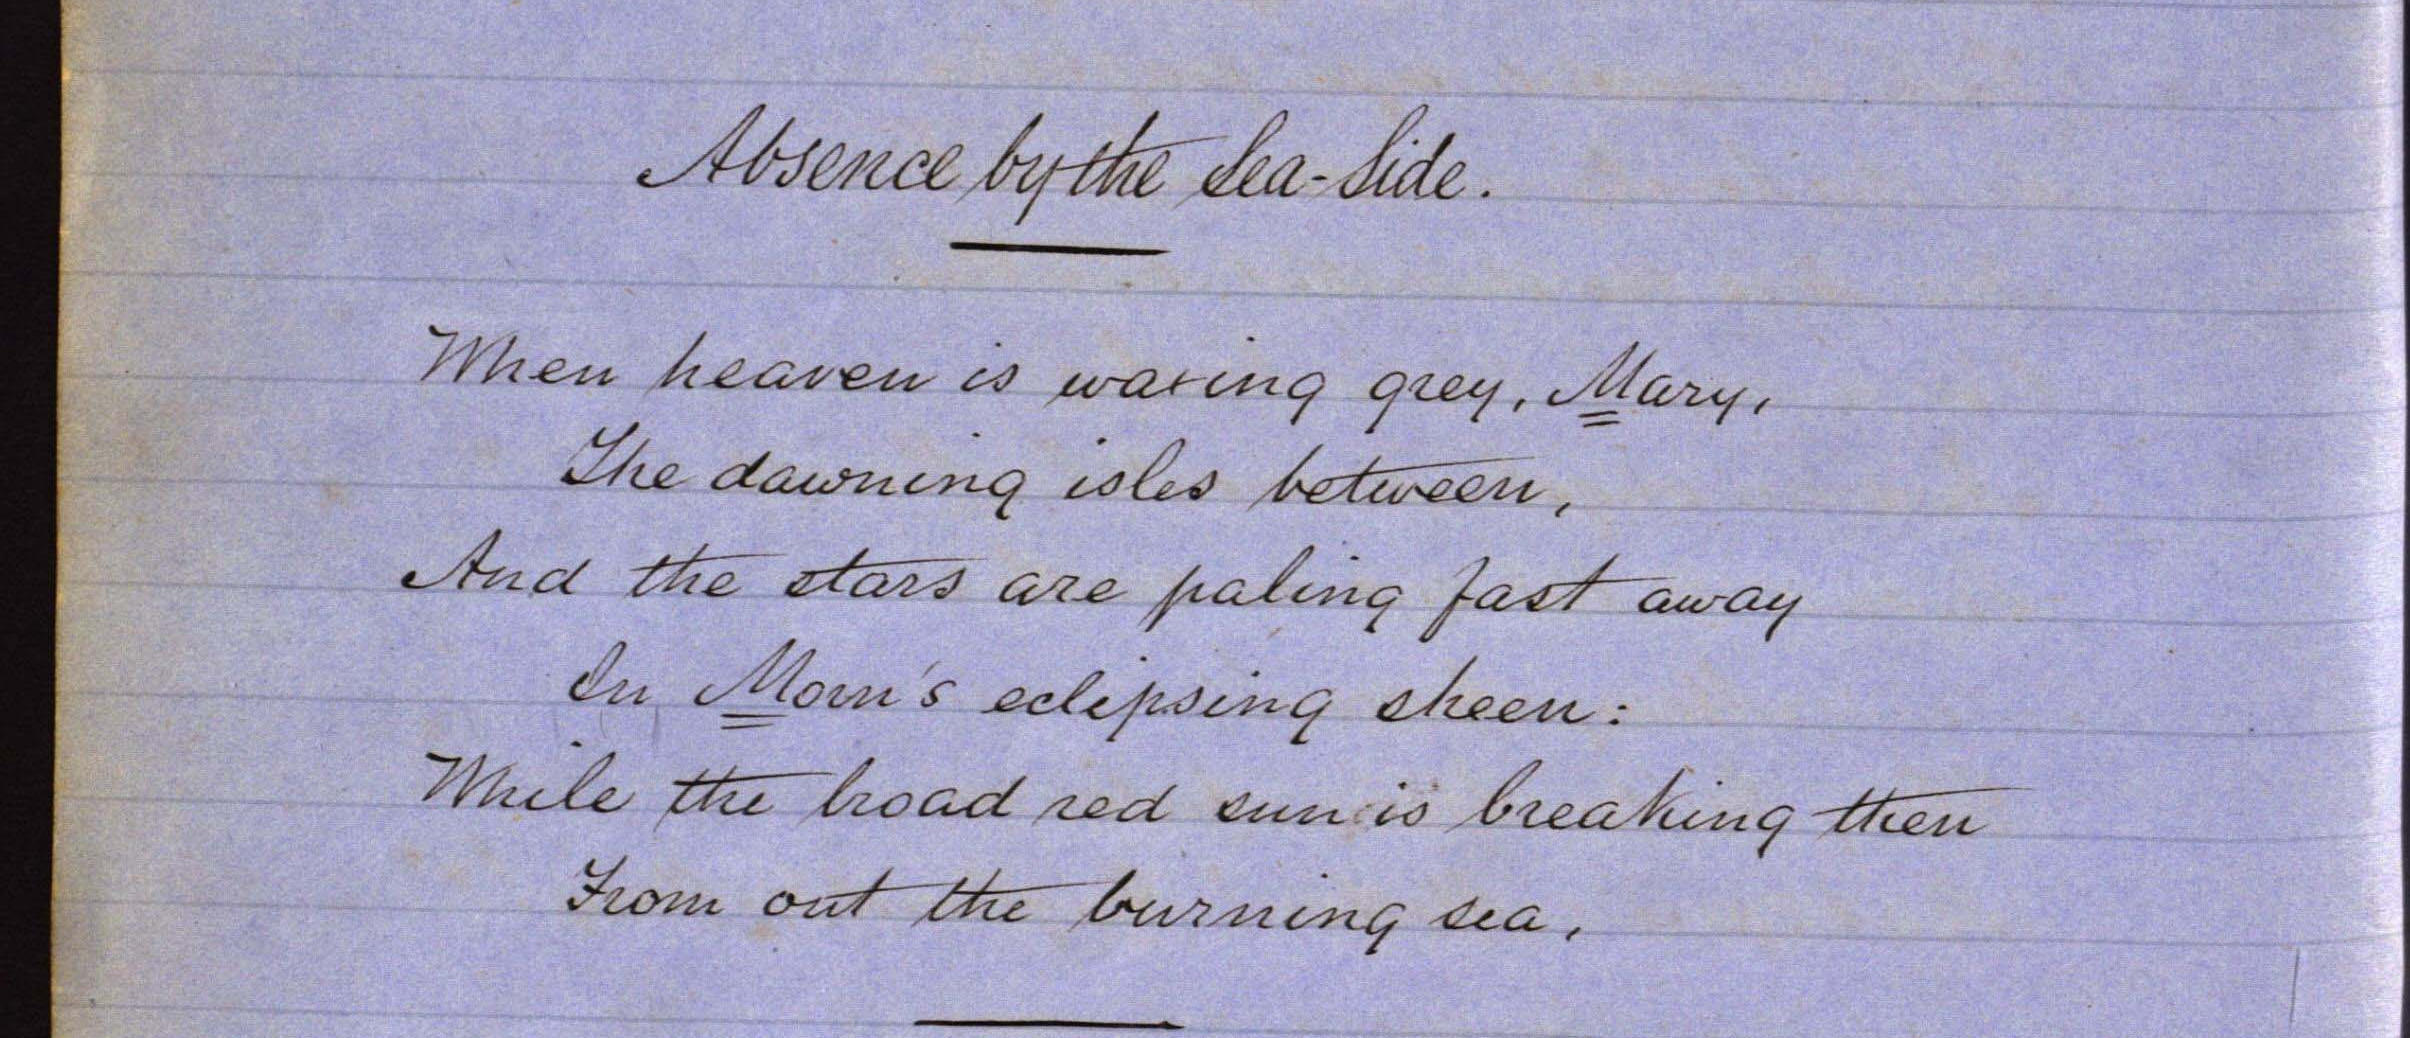 Absence by the Sea-Side.
When heaven is waxing grey, Mary,
The dawning isles between,
And the stars are paling fast away
In Morn's eclipsing sheen:
While the broad red sun is breaking then
From out the burning sea,